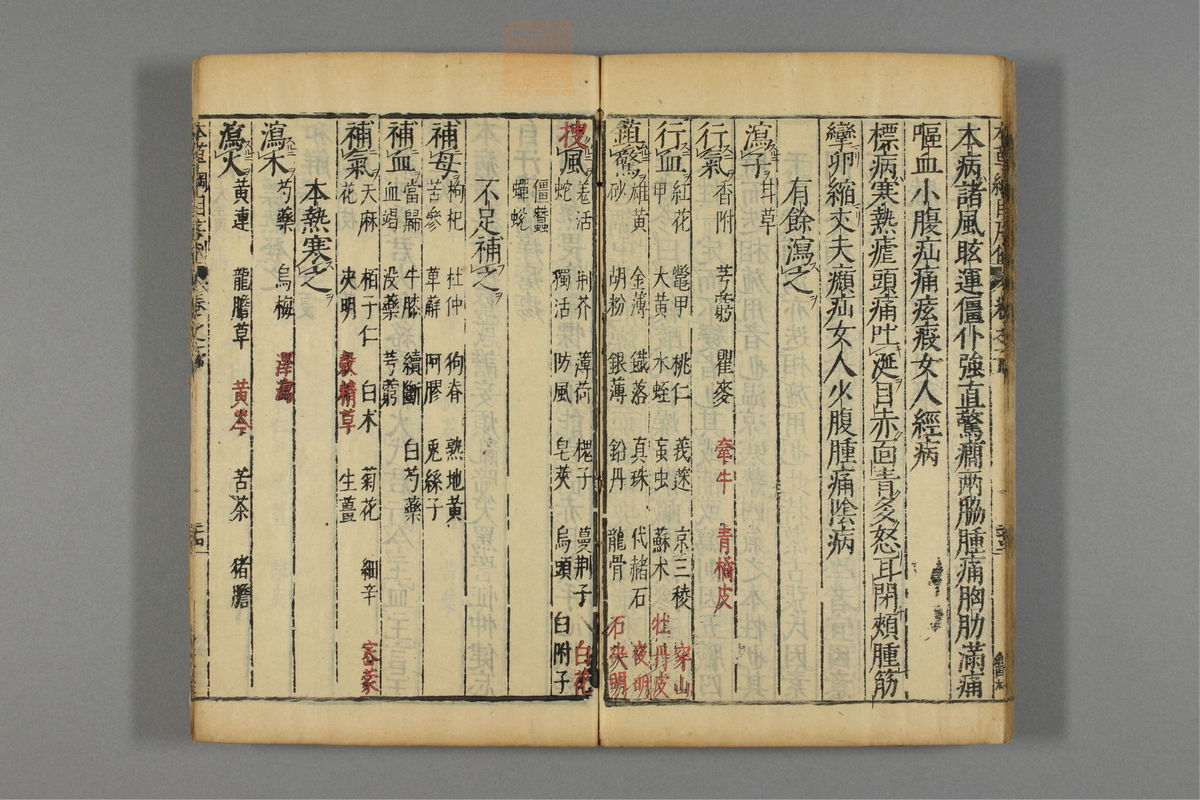 本病諸風眩運僵仆強直驚癇兩脇腫痛胸肋滿痛
嘔血小腹疝痛痃瘕女人經病
標病寒熱瘧頭痛吐涎目赤面青多怒耳閉頰腫筋
攣卵縮丈夫癩疝女人少腹腫痛陰病
有餘瀉之
瀉子 甘草
行氣 香附 芎藭 瞿麥 牽牛 青橘皮
行血 紅花 鱉甲 桃仁 莪蒁 京三稜 穿山
甲 大黃 水蛭 蝱虫 蘇木 牡丹皮
鎮驚 雄黃 金薄 鐵落 真珠 代赭石 夜明
砂 胡粉 銀薄 鉛丹 龍骨 石決明
搜風 羗活 荆芥 薄荷 槐子 蔓荆子 白花
蛇 獨活 防風 皂莢 烏頭 白附子
僵蠶
蟬蛻
不足補之
補母 枸杞 杜仲 狗脊 熟地黃
苦參 萆薢 阿膠 兎絲子
補血 當歸 牛膝 續斷 白芍藥
血竭 没藥 芎藭
補氣 天麻 栢子仁 白术 菊花 細辛 密蒙
花 决明 穀精草 生薑
本熱寒之
瀉木 芍藥 烏梅 澤瀉
瀉火 黃連 龍膽草 黃芩 苦茶 猪膽